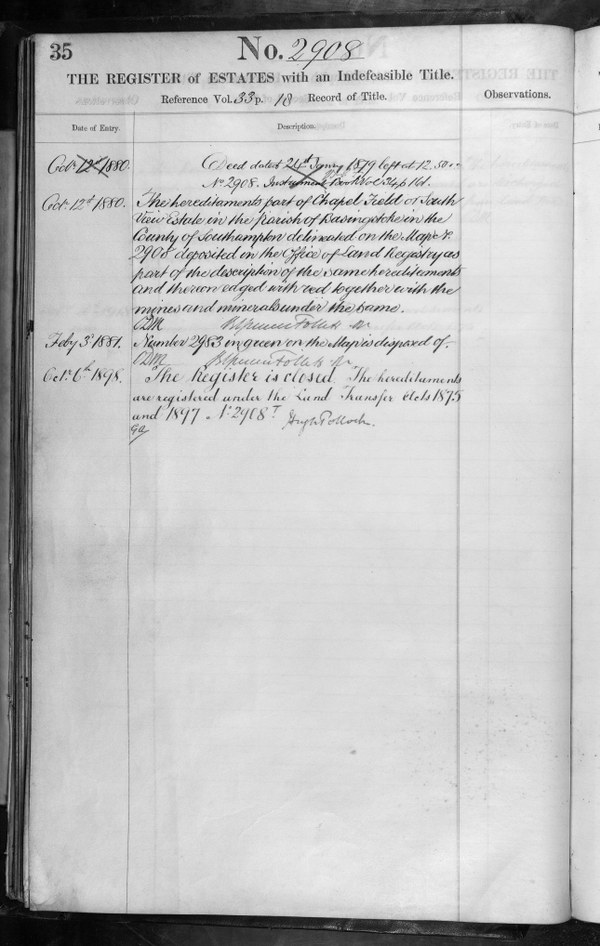 35
No. 2908
THE REGISTER of ESTATES with an Indefeasible Title.
Reference Vol. 33 p. 18 Record of Title.
Observations.
Date of Entry.
Description.
Octr. 12th 1880.
Deed dated 24th Janry 1879 left at 12.50
No. 2908. Instrument Book Vol 34 p 161.
Oct. 12th 1880.
The hereditaments part of Chapel Field or South
View Estate in the Parish of Basingstoke in the
County of Southampton delineated on the Map No.
2908 deposited in the Office of Land Registry as
part of the description of the same hereditaments
and thereon edged with red together with the
mines and minerals under the same.
Feby 3d 1881.
Number 2983 in green on the Map is disposed of.
Oct. 6th 1898.
The Register is closed. The hereditaments
are registered under the Land Transfer Acts 1875
and 1897 No. 2908T
Hugh Pollock.